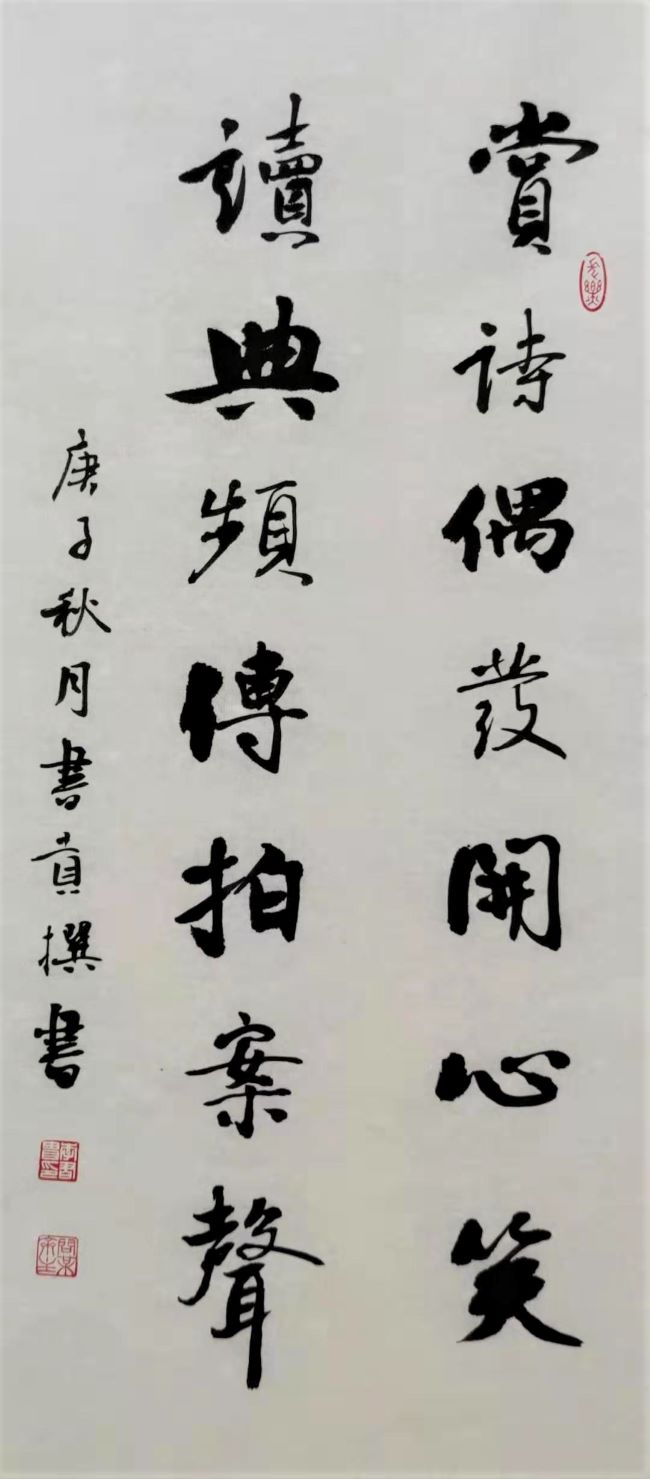 賞詩偶發開心笑
讀典頻傳拍案聲
庚子秋月書貴撰書